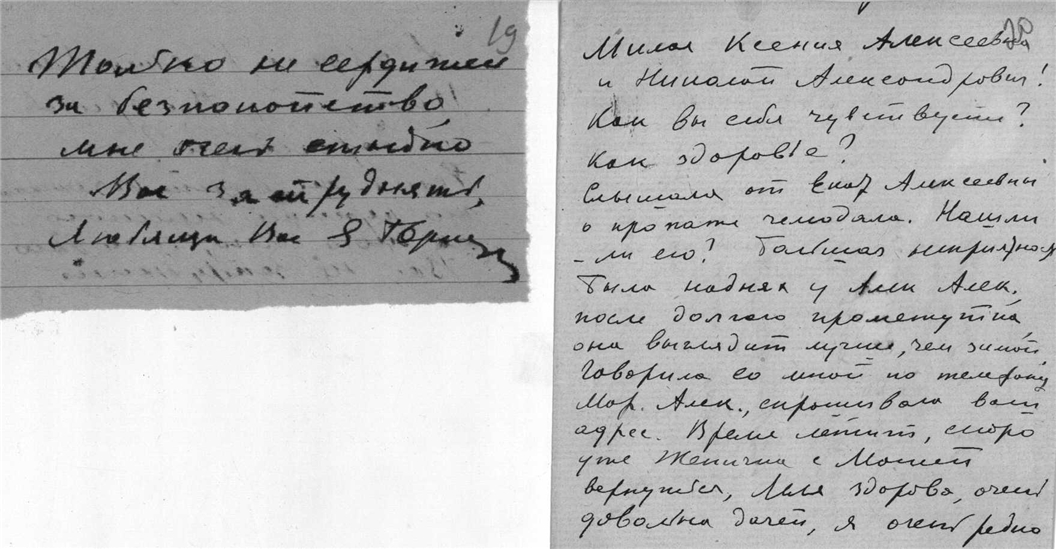 19
Только не сердитесь
за безпокойство,
мне очень стыдно
Вас затруднять,
Любящая Вас Я
20
Милая Ксения Алексеевна
и Николай Александрович!
Как вы себя чувствуете?
Как здоровье?
Слыхала от Екат Алексеевны
о пропаже чемодана. Нашли
-ли его? Большая неприятность
Была на днях у Алек Алек.
после долгого промежутка,
она выглядит лучше, чем зимой,
Говорила со мной по телефону
Мар. Алек., спрашивала ваш
адрес. Время летит, скоро
уже Женичка с
вернутся, здорова, очень
довольна дачей, я очень редко